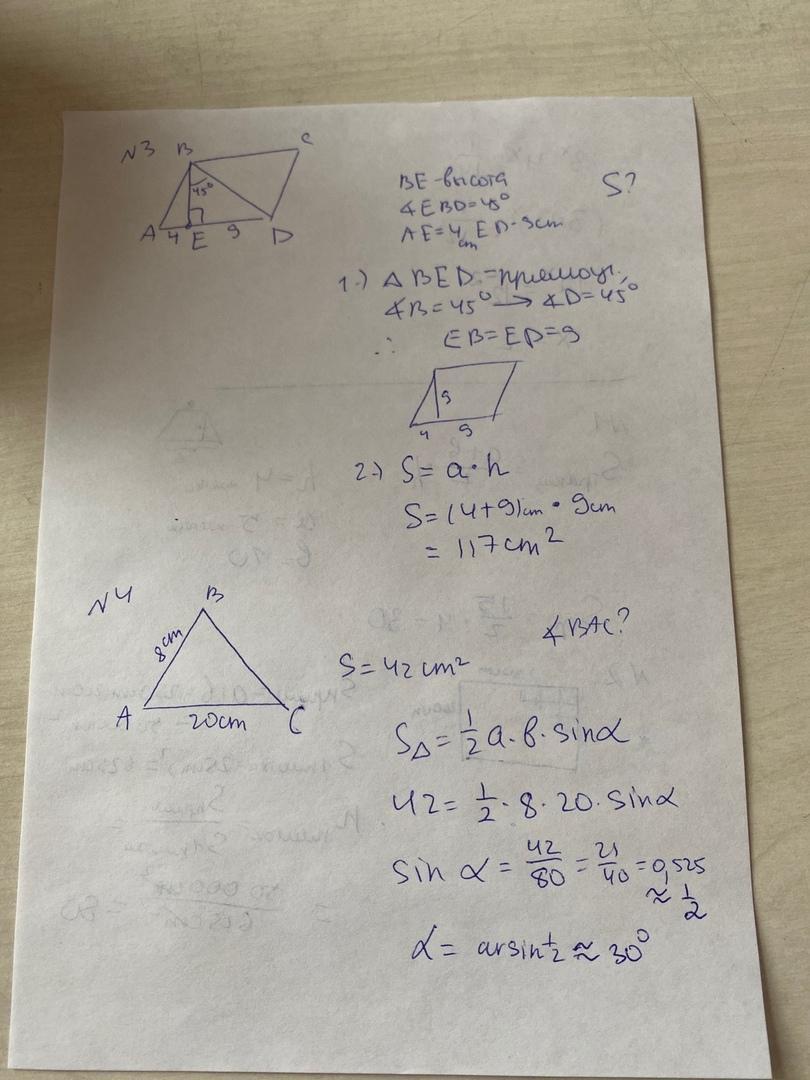 N3
B
C
45°
A 4 E 9 D
BE - высота
∢EBD=45°
AE=4cm ED-9cm
S?
1.) Δ BED. - прямоуг.,
∢B = 45° → ∢D=45°
∴ EB=ED=9
9
4 9
2.) S= a·h
S= (4+9)cm · 9cm
= 117cm²
N4
B
8cm
A 20cm C
∢BAC?
S=42cm²
S△ = 1/2 a·b·sinα
42= 1/2 · 8 · 20 · sinα
sin α = 42/80 = 21/40 = 0,525
≈ 1/2
α= arsin 1/2 ≈ 30°